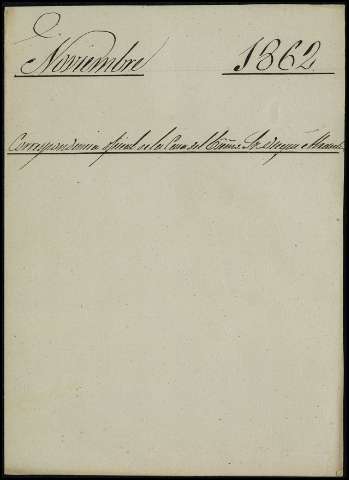 Noviembre 1862
Correspondencia oficial de la Casa del Exmo. Sr. Duque